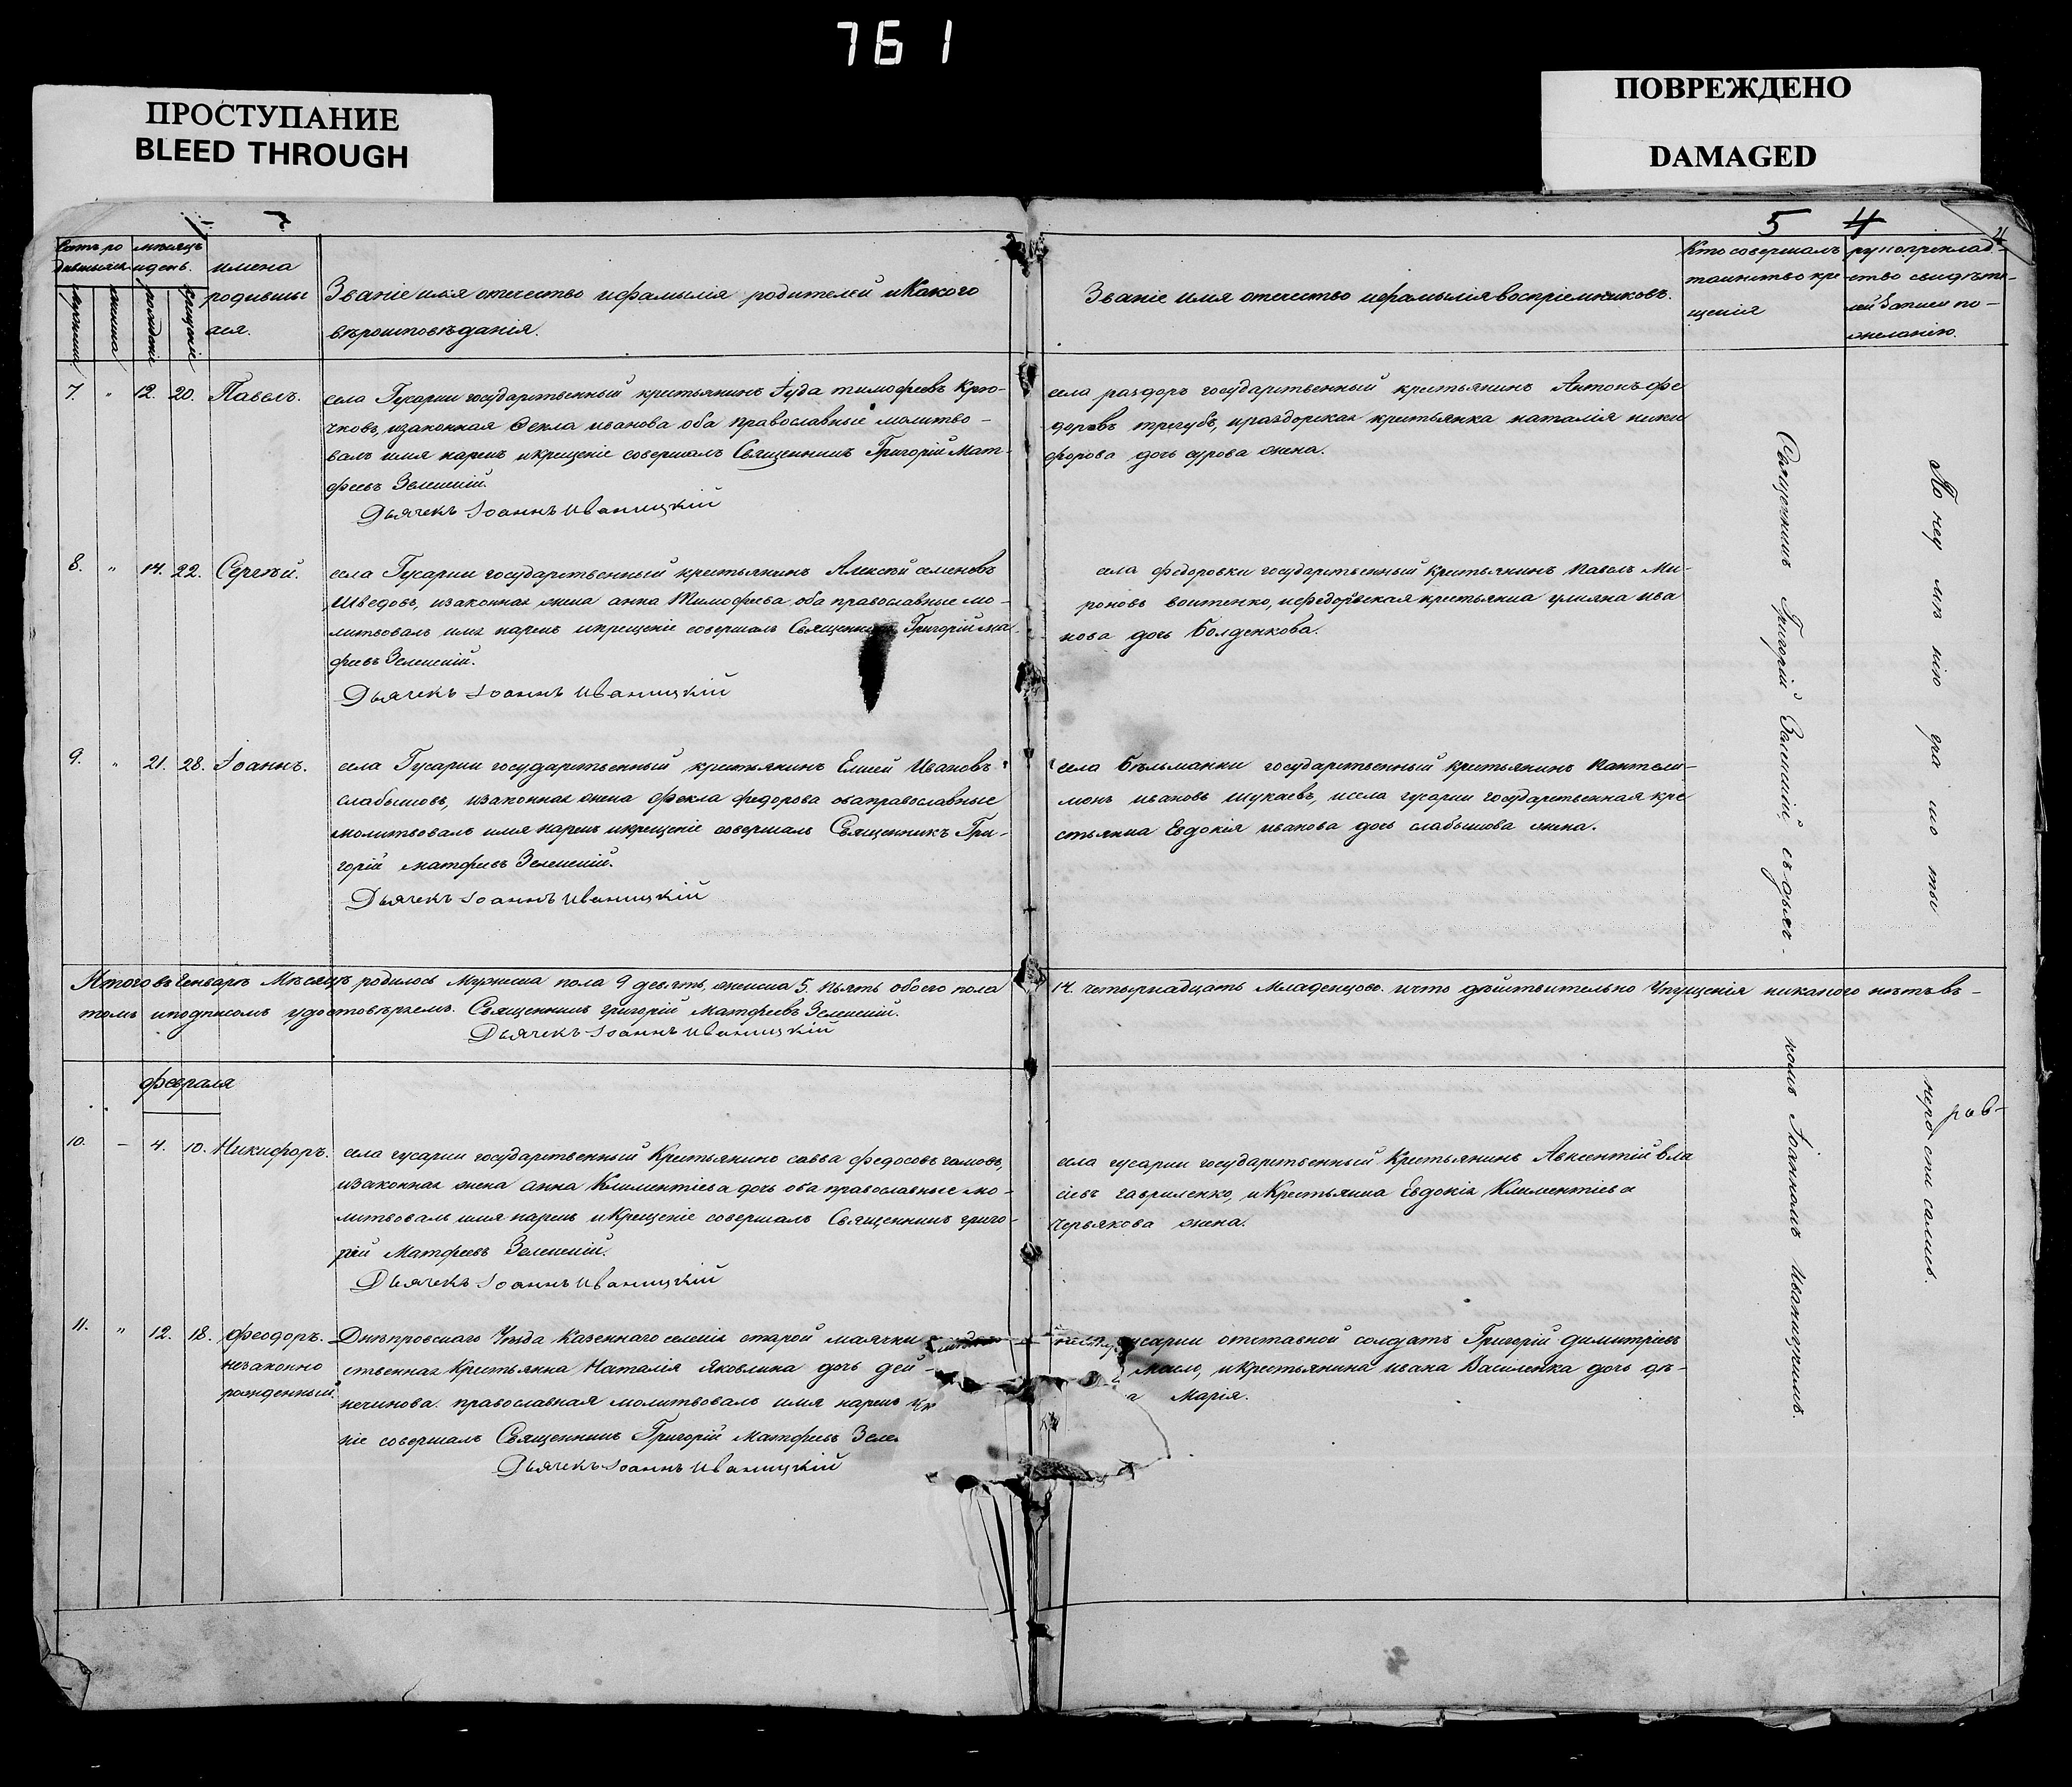 761
ПРОСТУПАНИЕ
BLEED THROUGH
ПОВРЕЖДЕНО
DAMAGED
5 4
мѣсяцъ
и день.
имена
родивши
ася.
Званіе имя отечество и фамылія родителей и Какого
вѣроисповѣданія.
Званіе имя отечество и фамылія воспріемниковъ.
Кто совершалъ
таинство кре
щенія
рукоприклад-
ство свидѣте-
лей Записи по-
желанію.
7. " 12. 20. Павелъ.
села Гусарки государственный крестьянинъ Іуда тимофеевъ Крю-
чковъ, изаконная Фекла иванова оба православные молитво-
валъ имя нарекъ икрещеніе совершалъ Священникъ Григорій Мат-
феевъ Зеленскій.
Дьячекъ Іоаннъ Иваницкій
села раздоръ государственный крестьянинъ Антонъ фе
доровъ трегубъ, ираздорская крестьянка наталія ники
форова дочь сурова жена.
8. " 14. 22. Сергѣй.
села Гусарки государственный крестьянинъ Алексѣй семеновъ
Шведовъ, изаконная жена анна Тимофеева оба православные мо-
литвовалъ имя нарекъ икрещеніе совершалъ Священникъ Григорій ма
феевъ Зеленскій.
Дьячекъ Іоаннъ Иваницкій
села федоровки государственный крестьянинъ павелъ Ми-
роновъ воитенко, ифедоровская крестьянка улияна ива
нова дочь Болденкова.
9. " 21. 28. Іоаннъ.
села Гусарки государственный крестьянинъ Елисей Ивановъ
слабышовъ, изаконная жена фекла федорова оба православные
молитвовалъ имя нарекъ икрещеніе совершалъ Священникъ Гри-
горій матфеевъ Зеленскій.
Дьячекъ Іоаннъ Иваницкій
села Бѣльманки государственный крестьянинъ пантели-
монъ ивановъ шукаевъ, исела гусарки государственная кре
стьянка Евдокія иванова дочь слабышова жена.
Итого въ Генваръ Мѣсяцъ родилось Мужеска пола 9 девять, женска 5. пять обоего пола 14. четырнадцать Младенцовъ. ичто дѣйствительно Упущенія никакого нѣтъ въ-
томъ иподписомъ удостовѣряемъ. Священникъ григорій Матфеевъ Зеленскій.
Дьячекъ Іоаннъ Иваницкій
февраля
10. - 4. 10. Никифоръ.
села гусарки государственный Крестьянинъ савва федосовъ
изаконная жена анна Климентіева дочь оба православные мо-
литвовалъ имя нарекъ икрещеніе совершалъ Священникъ григо-
рій Матфеевъ Зеленскій.
Дьячекъ Іоаннъ Иваницкій
села гусарки государственный Крестьянинъ Авксентій Вла
сіевъ гавриленко, икрестьянка Евдокія Климентіева
Червякова жена.
11. " 12. 18. Феодоръ.
незаконно
рожденный.
Днѣпровскаго Уѣзда Казеннаго селенія старой маячки
ственная Крестьянка Наталія Яковлина дочь дей-
нечинова. православная молитвовалъ имя нарекъ
ніе совершалъ Священникъ Григорій Матфеевъ Зеле
Дьячекъ Іоаннъ Иваницкій
усарки отставной солдатъ Григорій димитріевъ
масло, икрестьянина ивана Василенка дочь дѣ-
а Марія.
Священникъ Григорій Зеленскій, съ дьяч-
комъ Іоанномъ Иваницкимъ.
По неу мѣ нію гра мо ты